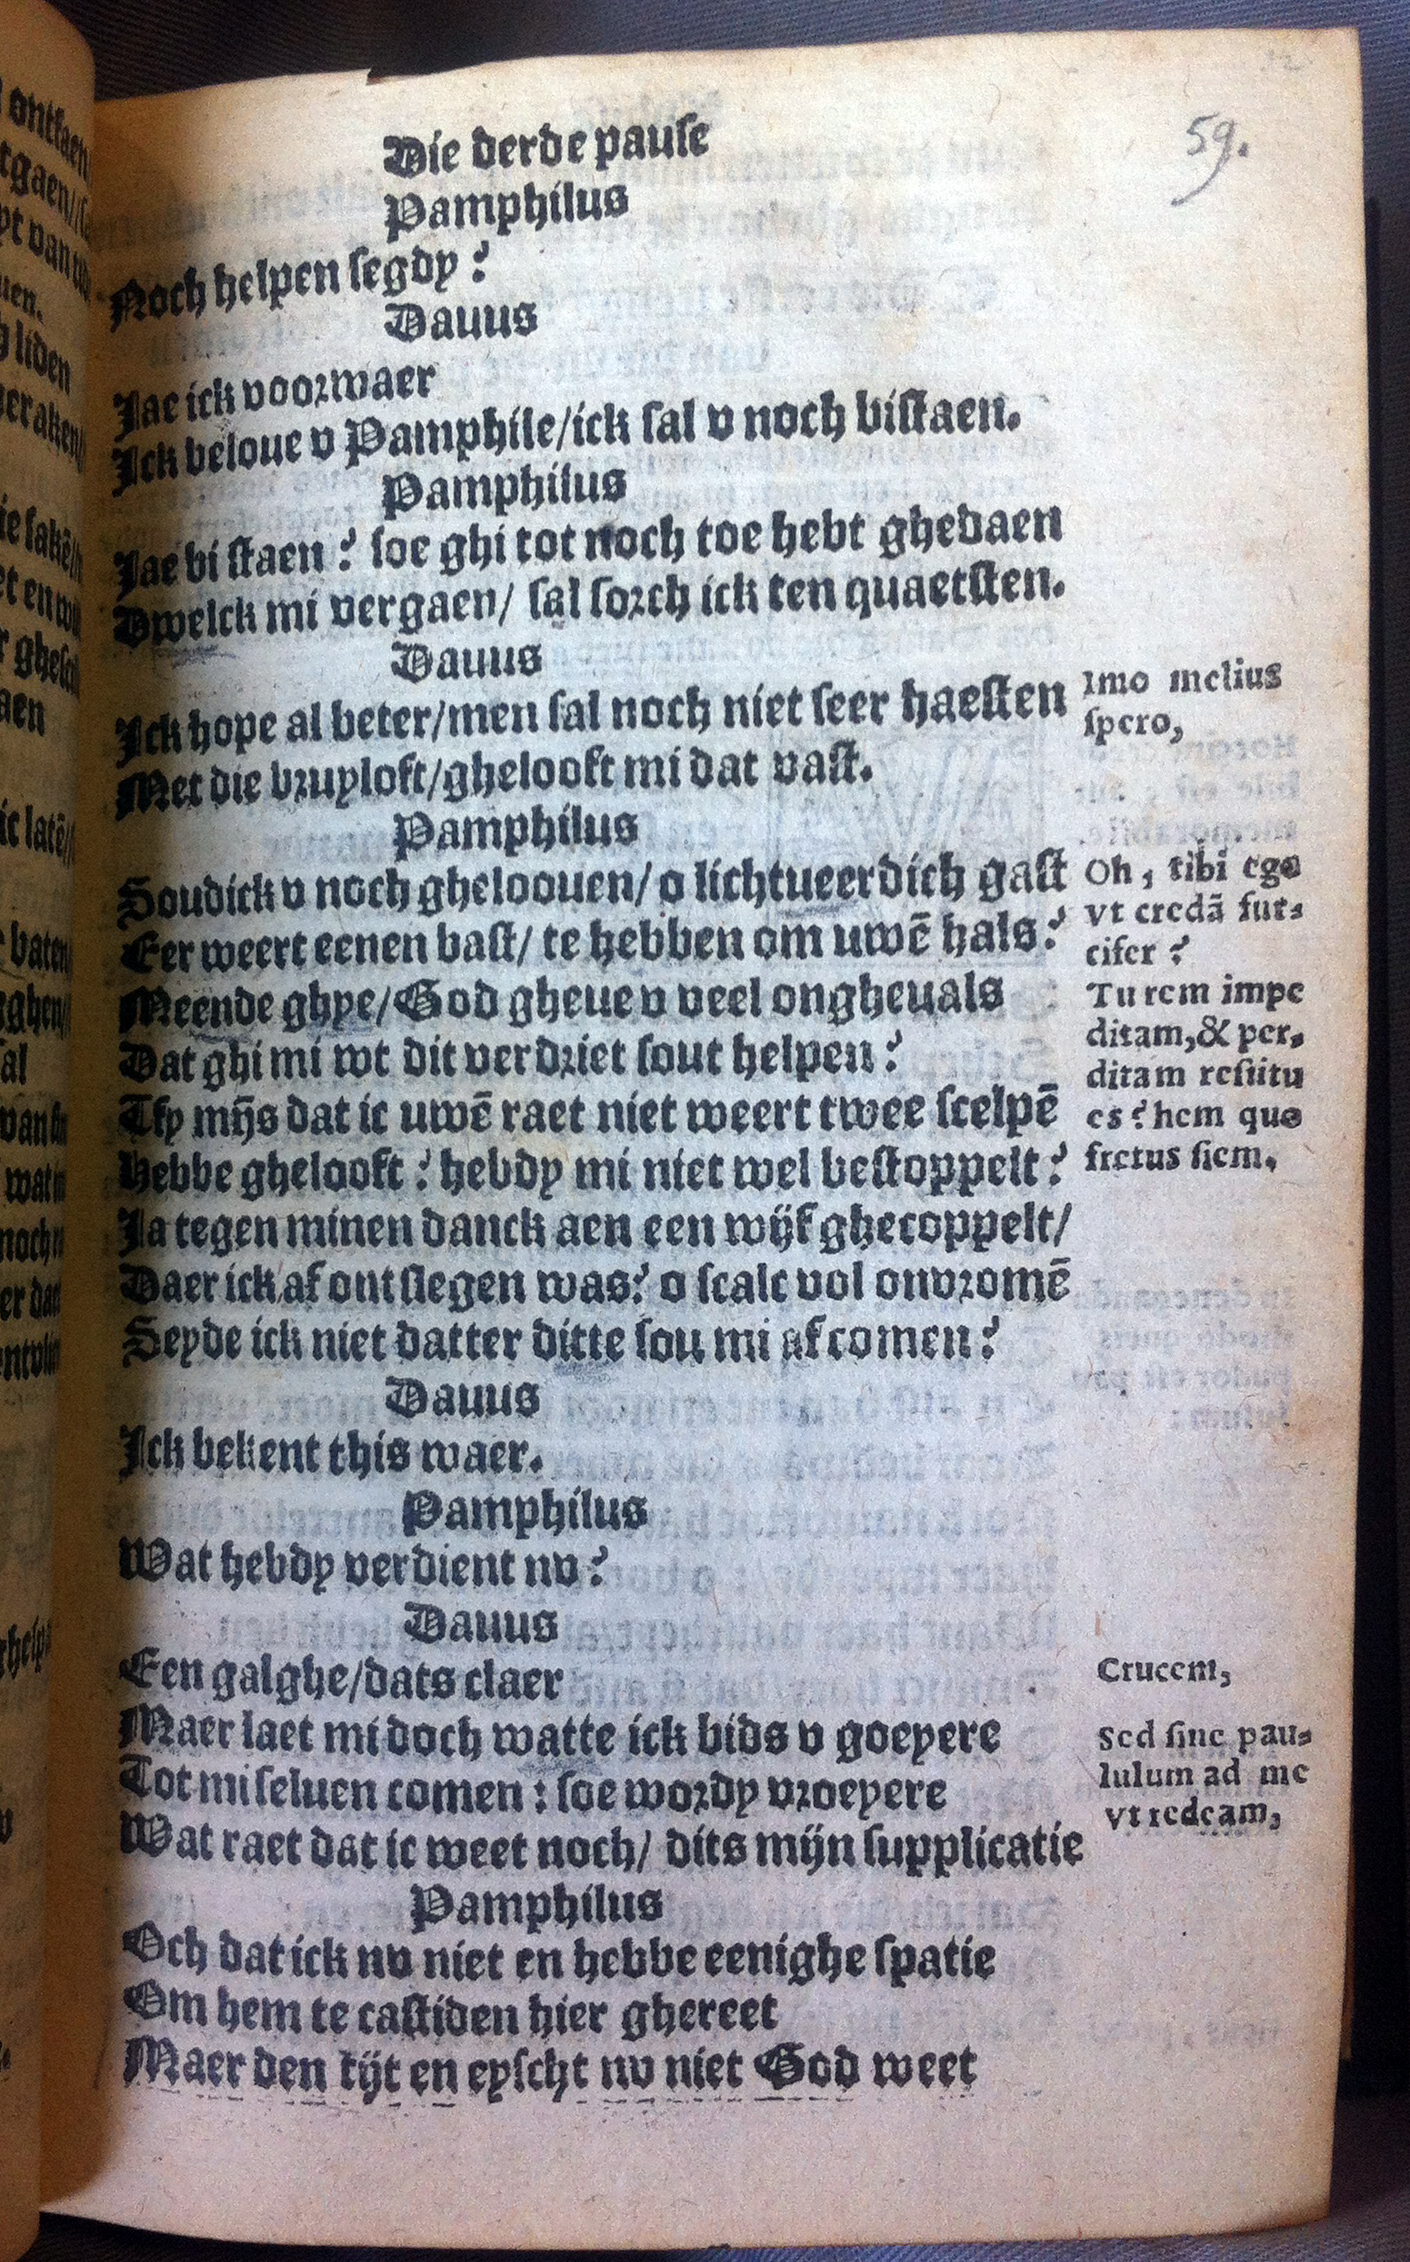 59.
Die derde pause
Pamphilus
Noch helpen segdy?
Dauus
Jae ick voorwaer
Ick beloue v Pamphile/ick sal v noch bistaen.
Pamphilus
Jae bi staen? soe ghi tot noch toe hebt ghedaen
Dwelck mi vergaen/ sal sorch ick ten quaetsten.
Dauus
Ick hope al beter/men sal noch niet seer haesten
Imo melius
spero,
Met die bruyloft/ghelooft mi dat vast.
Pamphilus
Soudick v noch gheloouen/o lichtueerdich gast
Eer weert eenen bast/ te hebben om uwē hals?
Oh, tibi ego
vt credā fur-
cifer?
Meende ghye/God gheue v veel ongheuals
Dat ghi mi wt dit verdriet sout helpen?
Tfy mijs dat ic uwē raet niet weert twee scelpē
Hebbe ghelooft? hebdy mi niet wel bestoppelt?
Tu rem impe
ditam,& per-
ditam restitu
es? hem quo
fretus siem,
Ja tegen minen danck aen een wijf ghecoppelt/
Daer ick af ontslegen was? o scalc vol onvromē
Seyde ick niet datter ditte sou mi af comen?
Dauus
Ick bekent this waer.
Pamphilus
Wat hebdy verdient nv?
Dauus
Een galghe/dats claer
Crucem,
Maer laet mi doch watte ick bids v goeyere
Tot mi seluen comen: soe wordy vroeyere
Wat raet dat ic weet noch/ dits mijn supplicatie
Sed sine pau-
lulum ad me
vt redeam,
Pamphilus
Och dat ick nv niet en hebbe eenighe spatie
Om hem te castiden hier ghereet
Maer den tijt en eyscht nv niet God weet